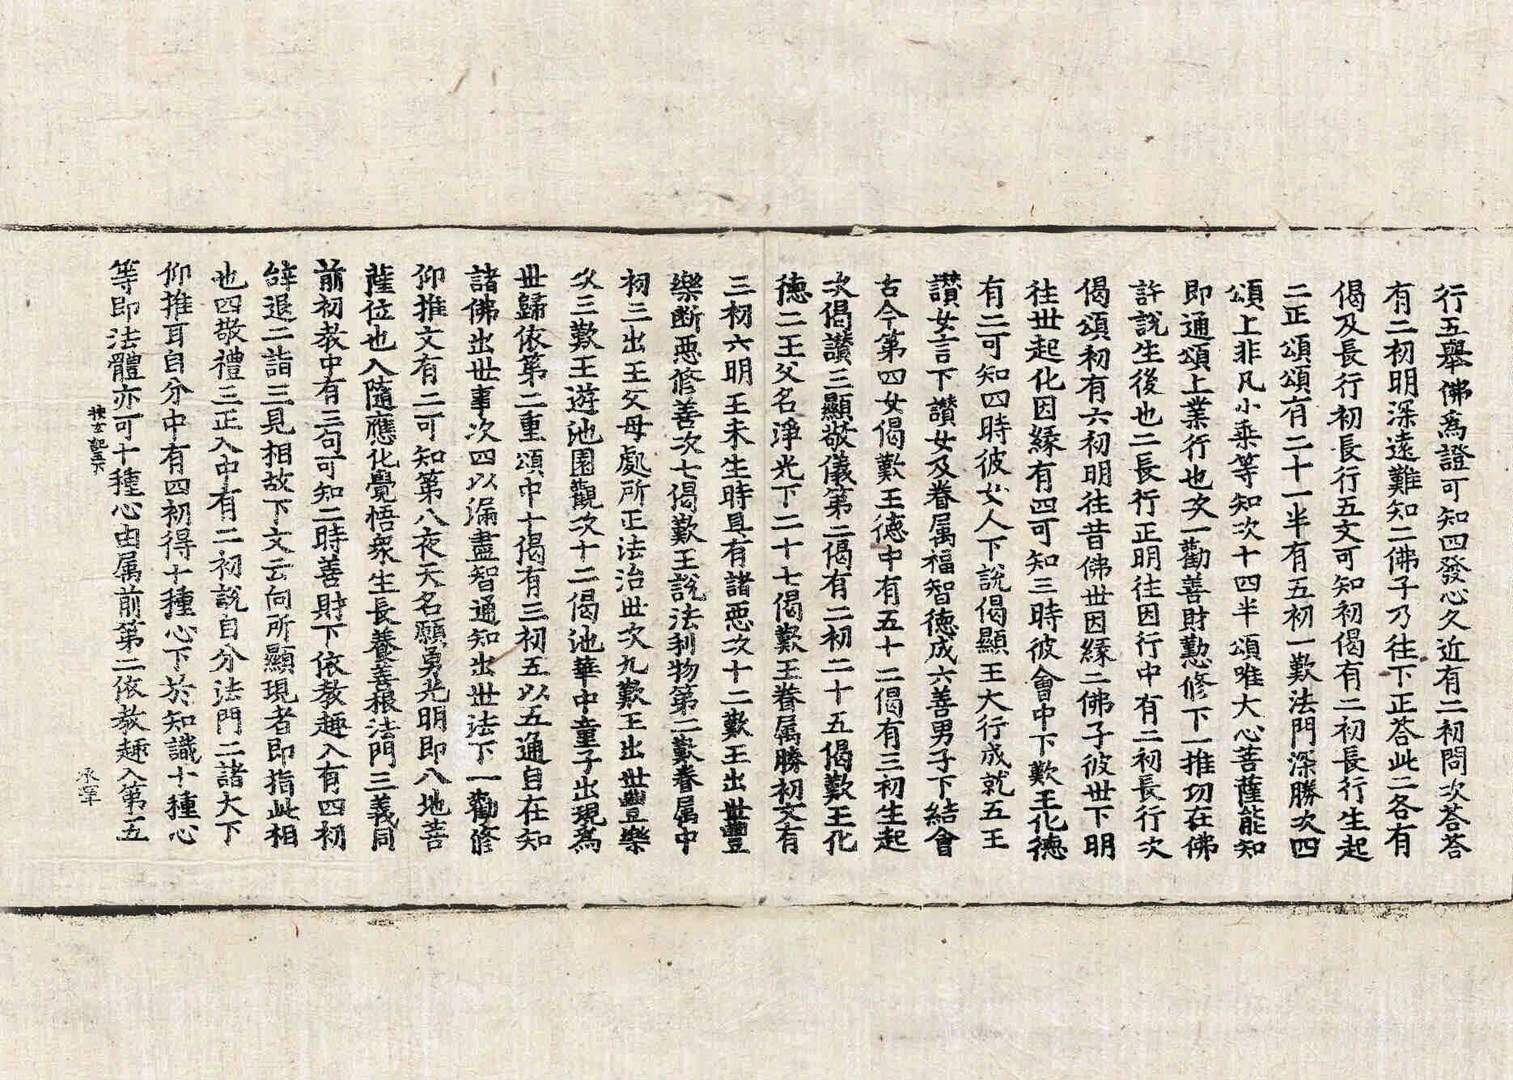 行五舉佛為證可知四發心久近有二初問次荅荅
有二初明深遠難知二佛子乃往下正荅此二各有
偈及長行初長行五文可知初偈有二初長行生起
二正頌頌有二十一半有五初一歎法門深勝次四
頌上非凡小乗等知次十四半頌唯大心菩薩能知
即通頌上業行也次一勸善財懃修下一推功在佛
許說生後也二長行正明往因行中有二初長行次
偈頌初有六初明往昔佛世因緣二佛子彼世下明
往世起化因緣有四可知三時彼會中下歎王化德
有二可知四時彼女人下說偈顯王大行成就五王
讃女言下讃女及眷属福智德成六善男子下結會
古今第四女偈歎王德中有五十二偈有三初生起
次偈讃三顯敬儀第二偈有二初二十五偈歎王化
德二王父名淨光下二十七偈歎王眷属勝初文有
三初六明王未生時具有諸惡次十二歎王出世豐
樂断惡修善次七偈歎王說法利物第二歎眷属中
初三出王父母處所正法治世次九歎王出世豐樂
次三歎王遊池園觀次十二偈池華中童子出現為
世歸依第二重頌中十偈有三初五以五通自在知
諸佛出世事次四以漏盡智通知出世法下一勸修
仰推文有二可知第八夜天名願勇光明即八地菩
薩位也入隨應化覺悟衆生長養善根法門三義同
前初教中有三句可知二時善財下依教趣入有四初
辝退二詣三見相故下文云向所顯現者即指此相
也四敬禮三正入中有二初說自分法門二諸大下
仰推耳自分中有四初得十種心下於知識十種心
等即法體亦可十種心由属前第二依教趣入第五